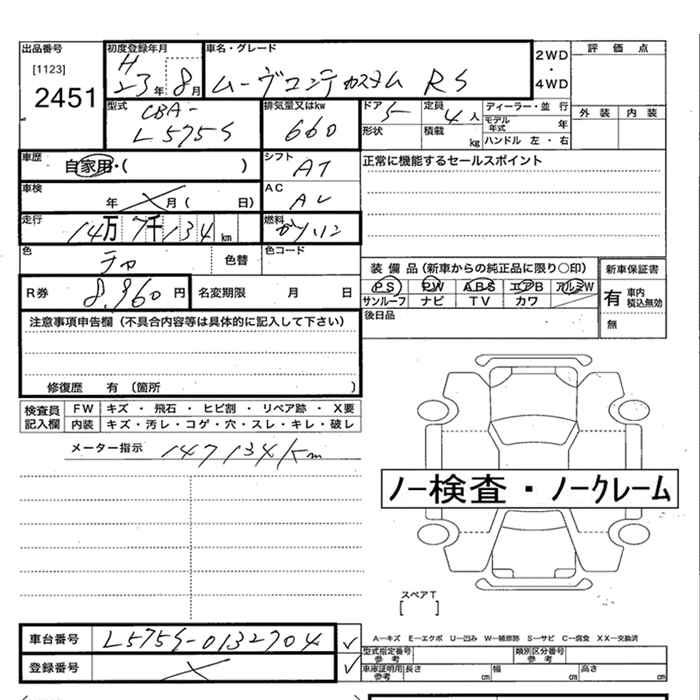 出品番号
[1123]
2451
初度登録年月
H
23年 8月
車名・グレード
ムーヴコンテカスタム RS
2WD
・
4WD
評価点
外装 内装
型式
CBA-
L575S
排気量又はkw
660
ドア 5
形状
定員 4人
積載 kg
ディーラー・並行
モデル年式 年
ハンドル 左・右
車歴
自家用・( )
シフト
AT
正常に機能するセールスポイント
車検
年 月( 日)
AC
走行
14万7千134km
燃料
ガソリン
色
色替
色コード
R券 8,960円
名変期限 月 日
装備品(新車からの純正品に限り〇印)
PS PW ABS エアB アルミW
サンルーフ ナビ TV カワ
後日品
新車保証書
有 車内積込無効
無
注意事項申告欄(不具合内容等は具体的に記入して下さい)
修復歴 有 (箇所 )
検査員記入欄
FW キズ・飛石・ヒビ割・リペア跡・X要
内装 キズ・汚レ・コゲ・穴・スレ・キレ・破レ
メーター指示 147134Km
ノー検査・ノークレーム
スペアT
[ ]
車台番号 L575S-0132704
登録番号
A―キズ E―エクボ U―凹み W―補修跡 S―サビ C―腐食 XX―交換済
型式指定番号 参考
類別区分番号 参考
車庫証明用 参考 長さ cm 幅 cm 高さ cm